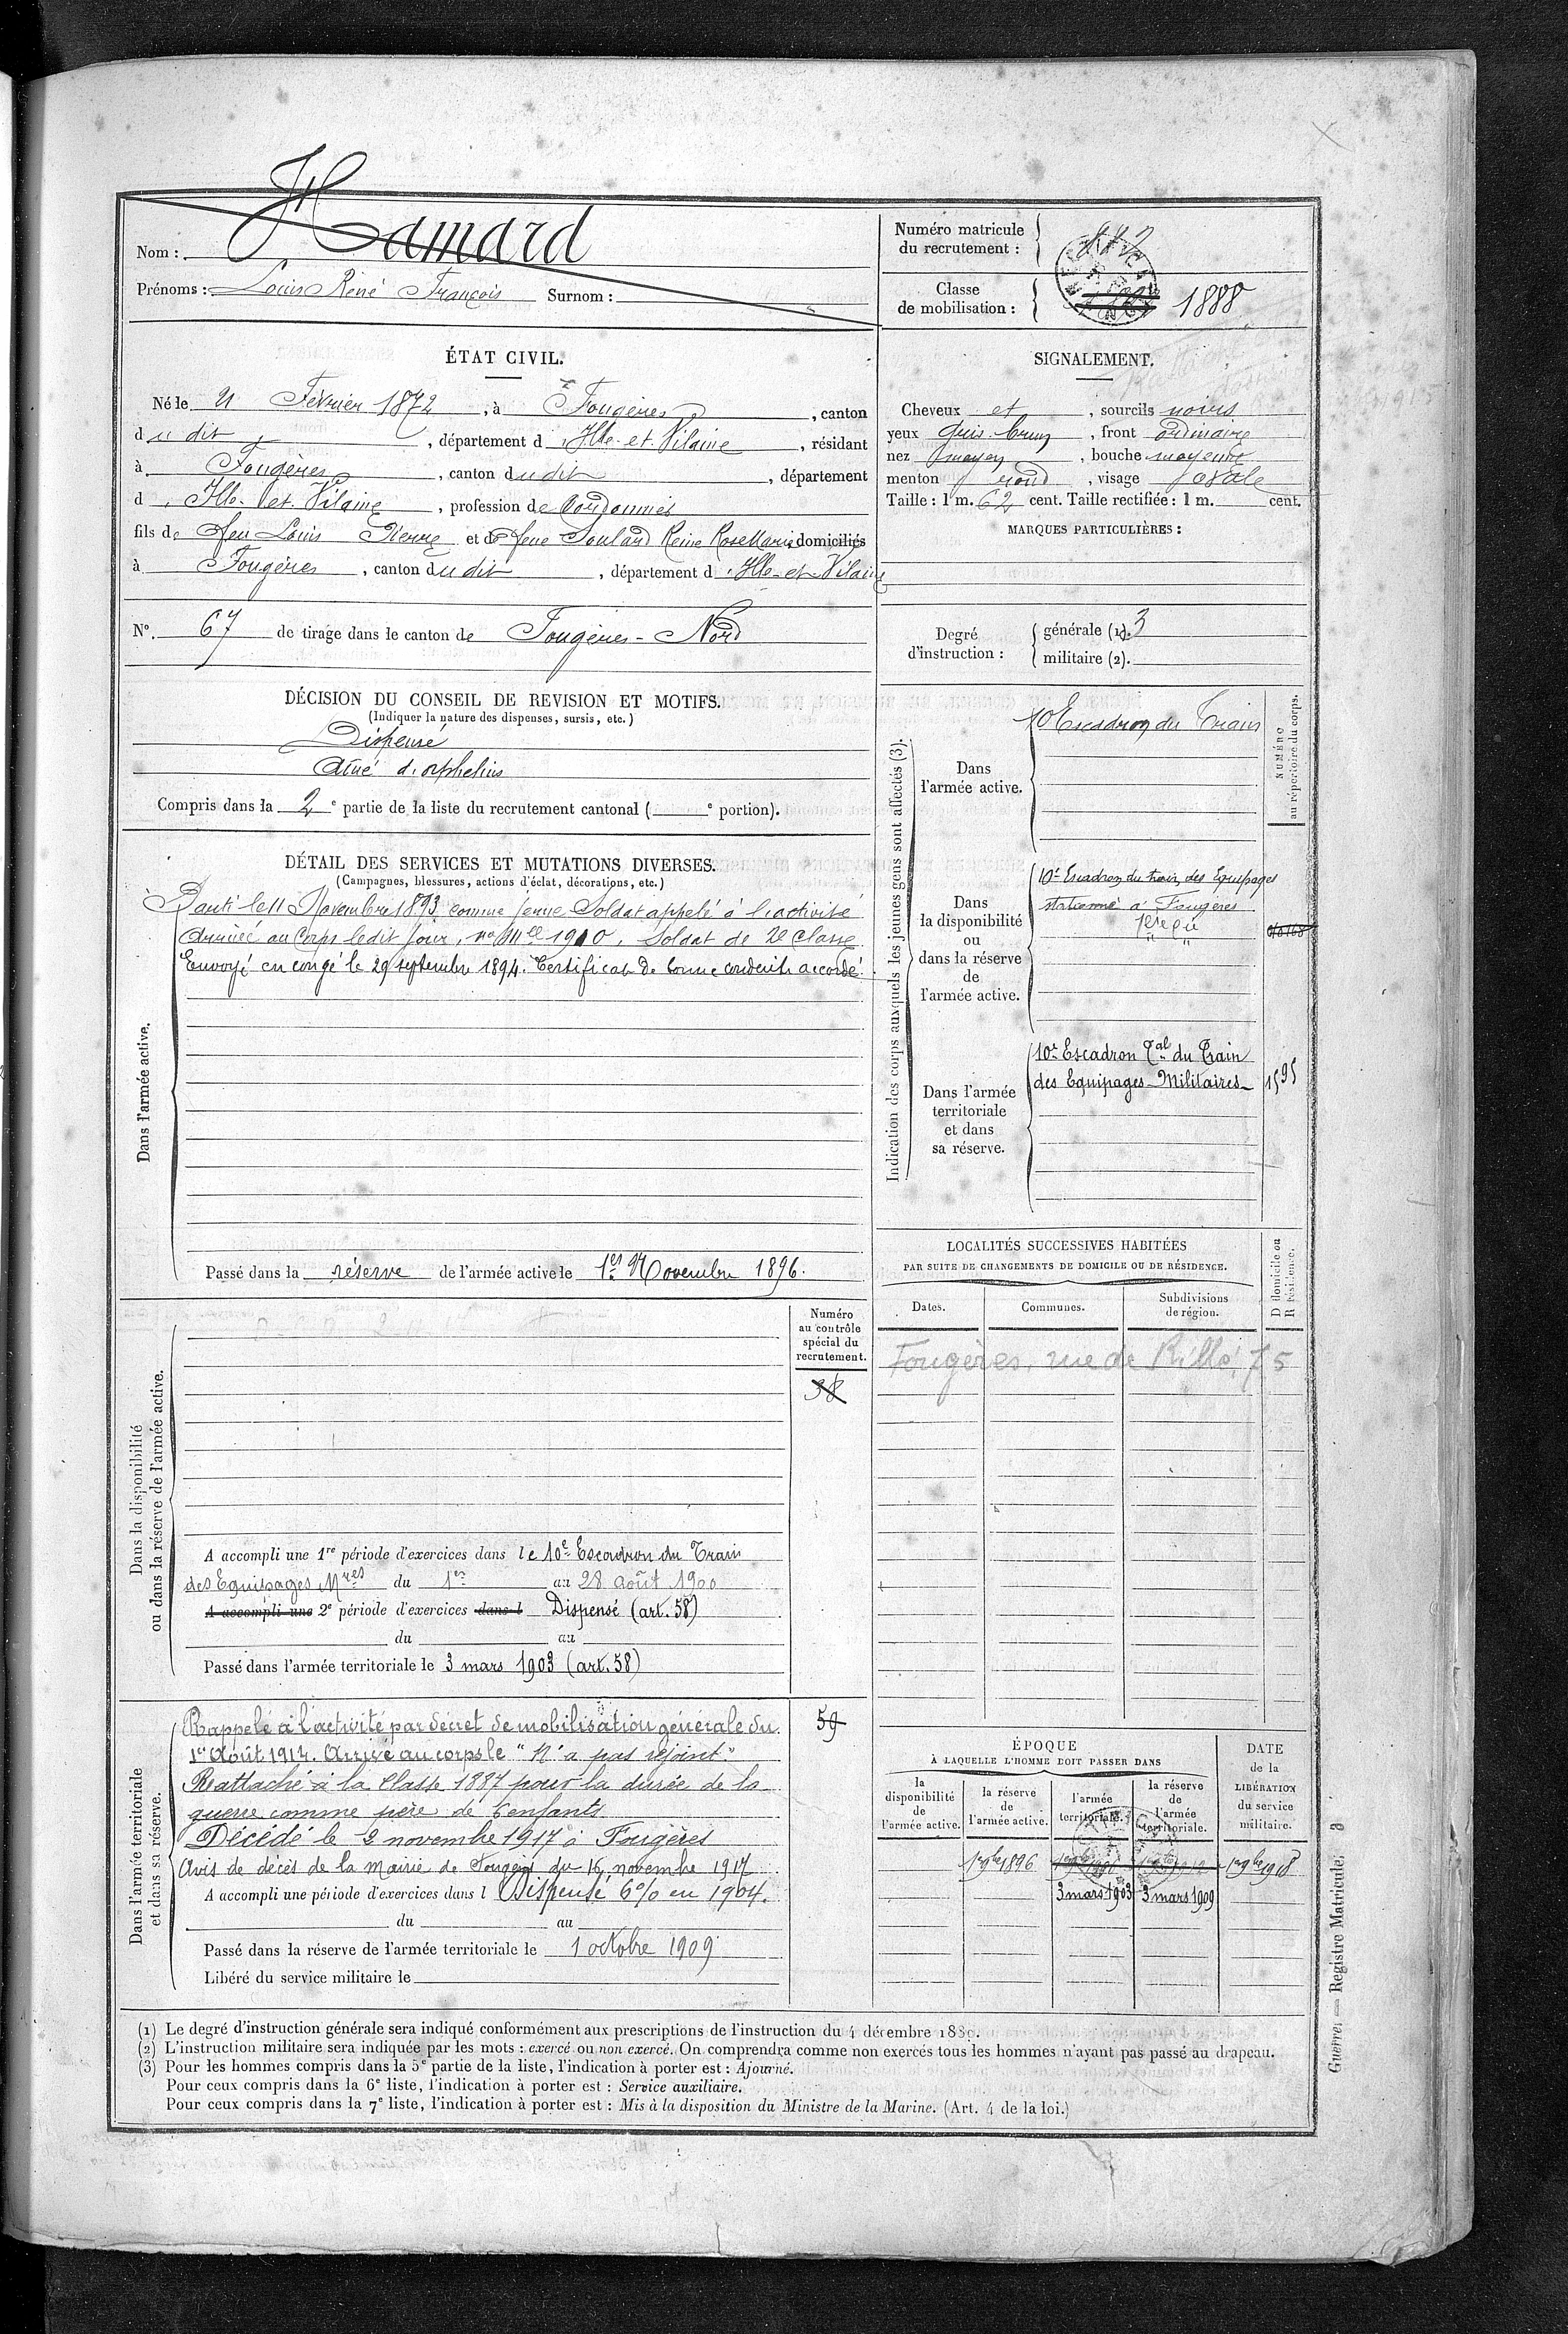 Nom : Hamard
Prénoms : Louis René François Surnom :
Numéro matricule
du recrutement :
Classe
de mobilisation : 1888
ÉTAT CIVIL.
Né le 21 Février 1872, à Fougères, canton
du dit, département d'Ille-et-Vilaine, résidant
à Fougères, canton du dit, département
d'Ille-et-Vilaine, profession de Cordonnier
fils de feu Louis Pierre et de feue Soulard Reine Rose Marie domiciliés
à Fougères, canton du dit, département d'Ille-et-Vilaine
N° 67 de tirage dans le canton de Fougères-Nord
SIGNALEMENT.
Cheveux et, sourcils noirs
yeux gris-brun, front ordinaire
nez moyen, bouche moyenne
menton rond, visage ovale
Taille : 1 m. 62 cent. Taille rectifiée : 1 m. cent.
MARQUES PARTICULIÈRES :
Degré
d'instruction :
générale (1). 3
militaire (2).
DÉCISION DU CONSEIL DE REVISION ET MOTIFS.
(Indiquer la nature des dispenses, sursis, etc.)
Dispensé
Aîné d'orphelins
Compris dans la 2e partie de la liste du recrutement cantonal ( e portion).
DÉTAIL DES SERVICES ET MUTATIONS DIVERSES.
(Campagnes, blessures, actions d'éclat, décorations, etc.)
Dans l'armée active.
Parti le 11 Novembre 1893 comme jeune Soldat appelé à l'activité
Arrivé au Corps ledit jour, no Mlle 1910. Soldat de 2e classe
Envoyé en congé le 29 septembre 1894. Certificat de bonne conduite accordé.
Passé dans la réserve de l'armée active le 1er Novembre 1896.
Indication des corps auxquels les jeunes gens sont affectés (3).
NUMÉRO
au répertoire du corps.
Dans
l'armée active.
10 Escadron du Train
Dans
la disponibilité
ou
dans la réserve
de
l'armée active.
10e Escadron du train des Equipages
stationné à Fougères
Dans l'armée
territoriale
et dans
sa réserve.
10e Escadron Tal du Train
des Equipages Militaires
1595
LOCALITÉS SUCCESSIVES HABITÉES
PAR SUITE DE CHANGEMENTS DE DOMICILE OU DE RÉSIDENCE.
D domicile ou
R résidence.
Dates.
Communes.
Subdivisions
de région.
Fougères, rue de Rillé, 75
Dans la disponibilité
ou dans la réserve de l'armée active.
Numéro
au contrôle
spécial du
recrutement.
38
A accompli une 1re période d'exercices dans le 10e Escadron du Train
des Equipages Mres du 1er au 28 août 1900
A accompli une 2e période d'exercices dans l Dispensé (art. 58)
du au
Passé dans l'armée territoriale le 3 mars 1903 (art. 58)
Dans l'armée territoriale
et dans sa réserve.
59
Rappelé à l'activité par décret de mobilisation générale du
1er Août 1914. Arrivé au corps le "N'a pas rejoint"
Rattaché à la Classe 1887 pour la durée de la
guerre comme père de 6 enfants
Décédé le 2 novembre 1917 à Fougères
Avis de décès de la Mairie de Fougères du 16 novembre 1917
A accompli une période d'exercices dans l Dispensé 6% en 1904.
du au
Passé dans la réserve de l'armée territoriale le 1 octobre 1909
Libéré du service militaire le
ÉPOQUE
À LAQUELLE L'HOMME DOIT PASSER DANS
la
disponibilité
de
l'armée active.
la réserve
de
l'armée active.
l'armée
territoriale.
la réserve
de
l'armée
territoriale.
DATE
de la
LIBÉRATION
du service
militaire.
1er 9bre 1896
1er 9bre 1918
3 mars 1903
3 mars 1909
(1) Le degré d'instruction générale sera indiqué conformément aux prescriptions de l'instruction du 4 décembre 1889.
(2) L'instruction militaire sera indiquée par les mots : exercé ou non exercé. On comprendra comme non exercés tous les hommes n'ayant pas passé au drapeau.
(3) Pour les hommes compris dans la 5e partie de la liste, l'indication à porter est : Ajourné.
Pour ceux compris dans la 6e liste, l'indication à porter est : Service auxiliaire.
Pour ceux compris dans la 7e liste, l'indication à porter est : Mis à la disposition du Ministre de la Marine. (Art. 4 de la loi.)
Guerre. — Registre Matricule.